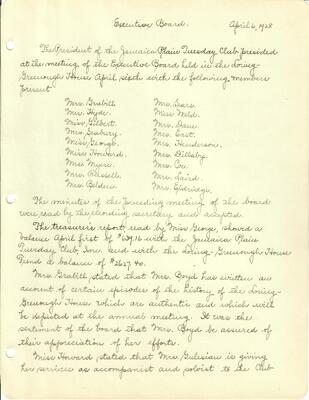 Executive Board. April 6, 1928
The President of the Jamaica Plain Tuesday Club presided
at the meeting of the Executive Board held in the Loring-
Greenough House April sixth with the following members
present
Mrs. Brabill Mrs. Sears.
Mrs. Hyde. Miss Weld.
Miss Gilbert. Mrs. Dane.
Mrs. Seabury. Mrs. East.
Miss George. Mrs. Henderson.
Miss Howard. Mrs. Dillaby.
Mrs. Myers. Mrs. Cox.
Mrs. Russell. Mrs. Laird.
Mrs. Belden. Mrs. Eldridge.
The minutes of the preceding meeting of the board
were read by the recording secretary and accepted.
The treasurer's report read by Miss George, showed a
balance April first of $639.16 with the Jamaica Plain
Tuesday Club, Inc. and with the Loring-Greenough House
Fund a balance of $2627.40.
Mrs. Brabill stated that Mrs. Boyd has written an
account of certain episodes of the history of the Loring-
Greenough House which are authentic and which will
be depicted at the annual meeting. It was the
sentiment of the board that Mrs. Boyd be assured of
their appreciation of her efforts.
Miss Howard stated that Mrs. Gulesian is giving
her services as accompanist and soloist to the Club